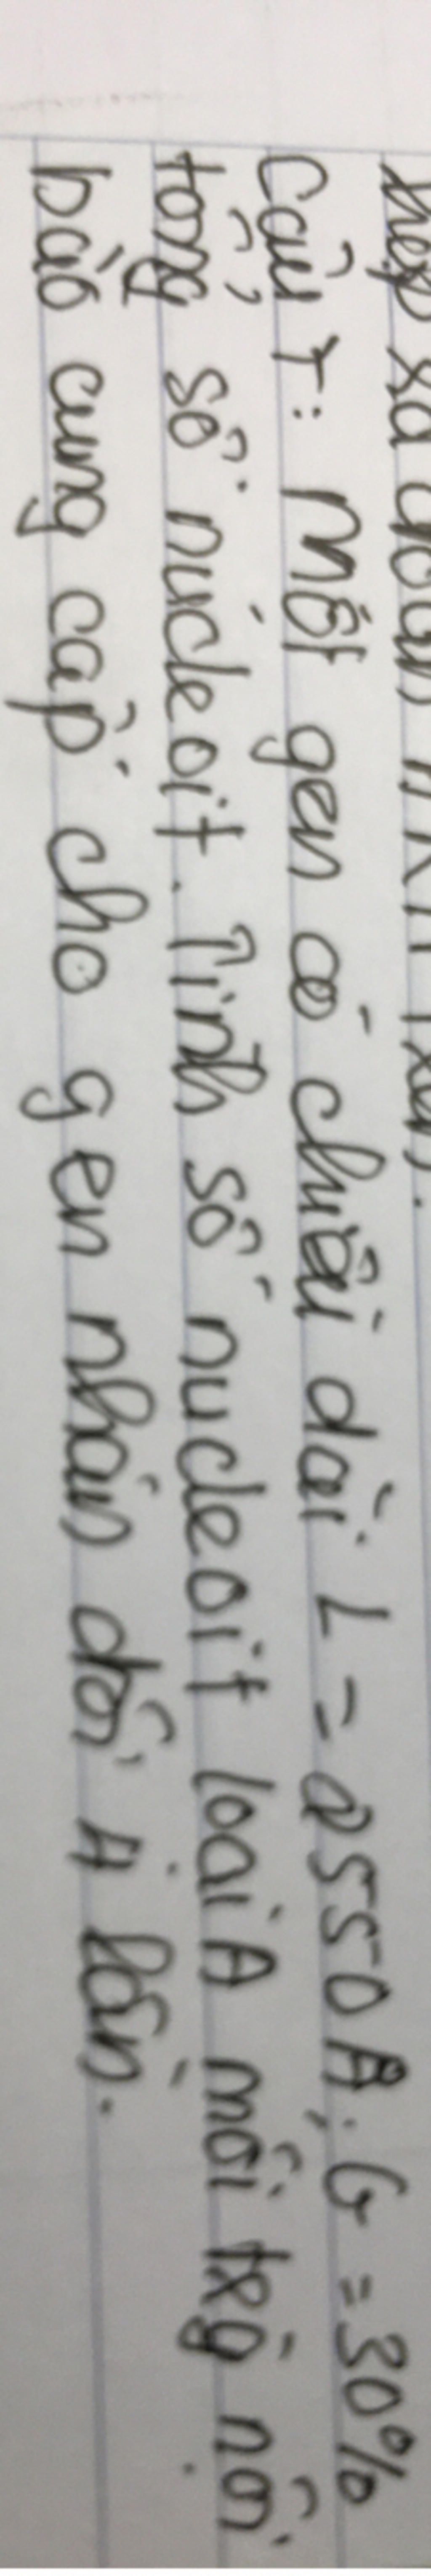 Câu 7: Một gen có chiều dài L = 2550 A; G = 30%
tổng số nucleoit. Tính số nucleoit loại A môi trg nội
bào cung cấp cho gen nhân đôi 4 lần.